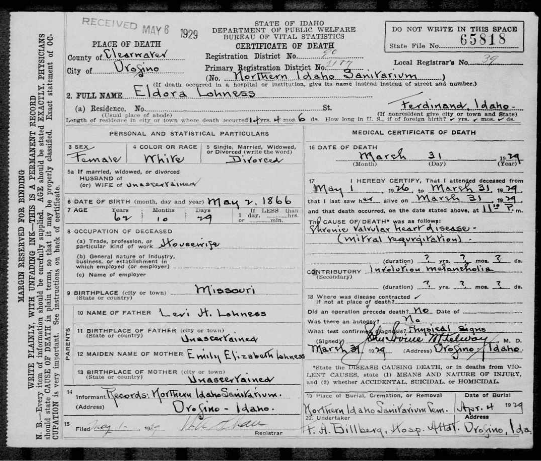 RECEIVED MAY 8 1929
STATE OF IDAHO
DEPARTMENT OF PUBLIC WELFARE
BUREAU OF VITAL STATISTICS
CERTIFICATE OF DEATH
DO NOT WRITE IN THIS SPACE
State File No. 65818
PLACE OF DEATH
County of Clearwater
City of Orofino
Registration District No.
Primary Registration District No.
Local Registrar's No. 39
(No. Northern Idaho Sanitarium)
(If death occurred in a hospital or institution, give its name instead of street and number.)
2. FULL NAME Eldora Lohness
(a) Residence. No. St. Ferdinand, Idaho.
(Usual place of abode) (If nonresident give city or town and State)
Length of residence in city or town where death occurred yrs. mos. 6 ds. How long in U. S., if of foreign birth? yrs. mos. ds.
PERSONAL AND STATISTICAL PARTICULARS
3 SEX Female
4 COLOR OR RACE White
5 Single, Married, Widowed, or Divorced (write the word) Divorced
5a If married, widowed, or divorced
HUSBAND of
(or) WIFE of Unascertained
6 DATE OF BIRTH (month, day and year) May 2, 1866
7 AGE Years 62 Months 10 Days 29 If LESS than 1 day, hrs. or min.
8 OCCUPATION OF DECEASED
(a) Trade, profession, or particular kind of work Housewife
(b) General nature of Industry, business, or establishment in which employed (or employer)
(c) Name of employer
9 BIRTHPLACE (city or town) Missouri
(State or country)
PARENTS
10 NAME OF FATHER Levi H. Lohness
11 BIRTHPLACE OF FATHER (city or town) Unascertained
(State or country)
12 MAIDEN NAME OF MOTHER Emily Elizabeth Lohness
13 BIRTHPLACE OF MOTHER (city or town) Unascertained
(State or country)
14 Informant Records: Northern Idaho Sanitarium.
(Address) Orofino - Idaho.
15 Filed Registrar
MEDICAL CERTIFICATE OF DEATH
16 DATE OF DEATH March 31 1929
(Month) (Day) (Year)
17 I HEREBY CERTIFY, That I attended deceased from
May 1 1926 to March 31, 1929
that I last saw her alive on March 31 1929
and that death occurred, on the date stated above, at 11 P. m.
The CAUSE OF DEATH* was as follows:
Chronic valvular heart disease.
(mitral regurgitation).
(duration) ? yrs. ? mos. ? ds.
CONTRIBUTORY Involution melancholia
(Secondary)
(duration) ? yrs. ? mos. ? ds.
18 Where was disease contracted
if not at place of death?
Did an operation precede death? No Date of
Was there an autopsy? No
What test confirmed diagnosis? Physical signs
(Signed) M. D.
March 31, 1929 (Address) Orofino, Idaho.
*State the DISEASE CAUSING DEATH, or in deaths from VIOLENT CAUSES, state (1) MEANS AND NATURE OF INJURY, and (2) whether ACCIDENTAL, SUICIDAL or HOMICIDAL.
19 Place of Burial, Cremation, or Removal Date of Burial
Northern Idaho Sanitarium Cem. Apr. 4 1929
Undertaker (Address)
F. A. Billberg, Hosp. Attdt. Orofino, Ida.
MARGIN RESERVED FOR BINDING
WRITE PLAINLY, WITH UNFADING INK—THIS IS A PERMANENT RECORD
N. B.—Every item of information should be carefully supplied. AGE should be stated EXACTLY. PHYSICIANS
should state CAUSE OF DEATH in plain terms, so that it may be properly classified. Exact statement of OC-
CUPATION is very important. See instructions on back of certificate.